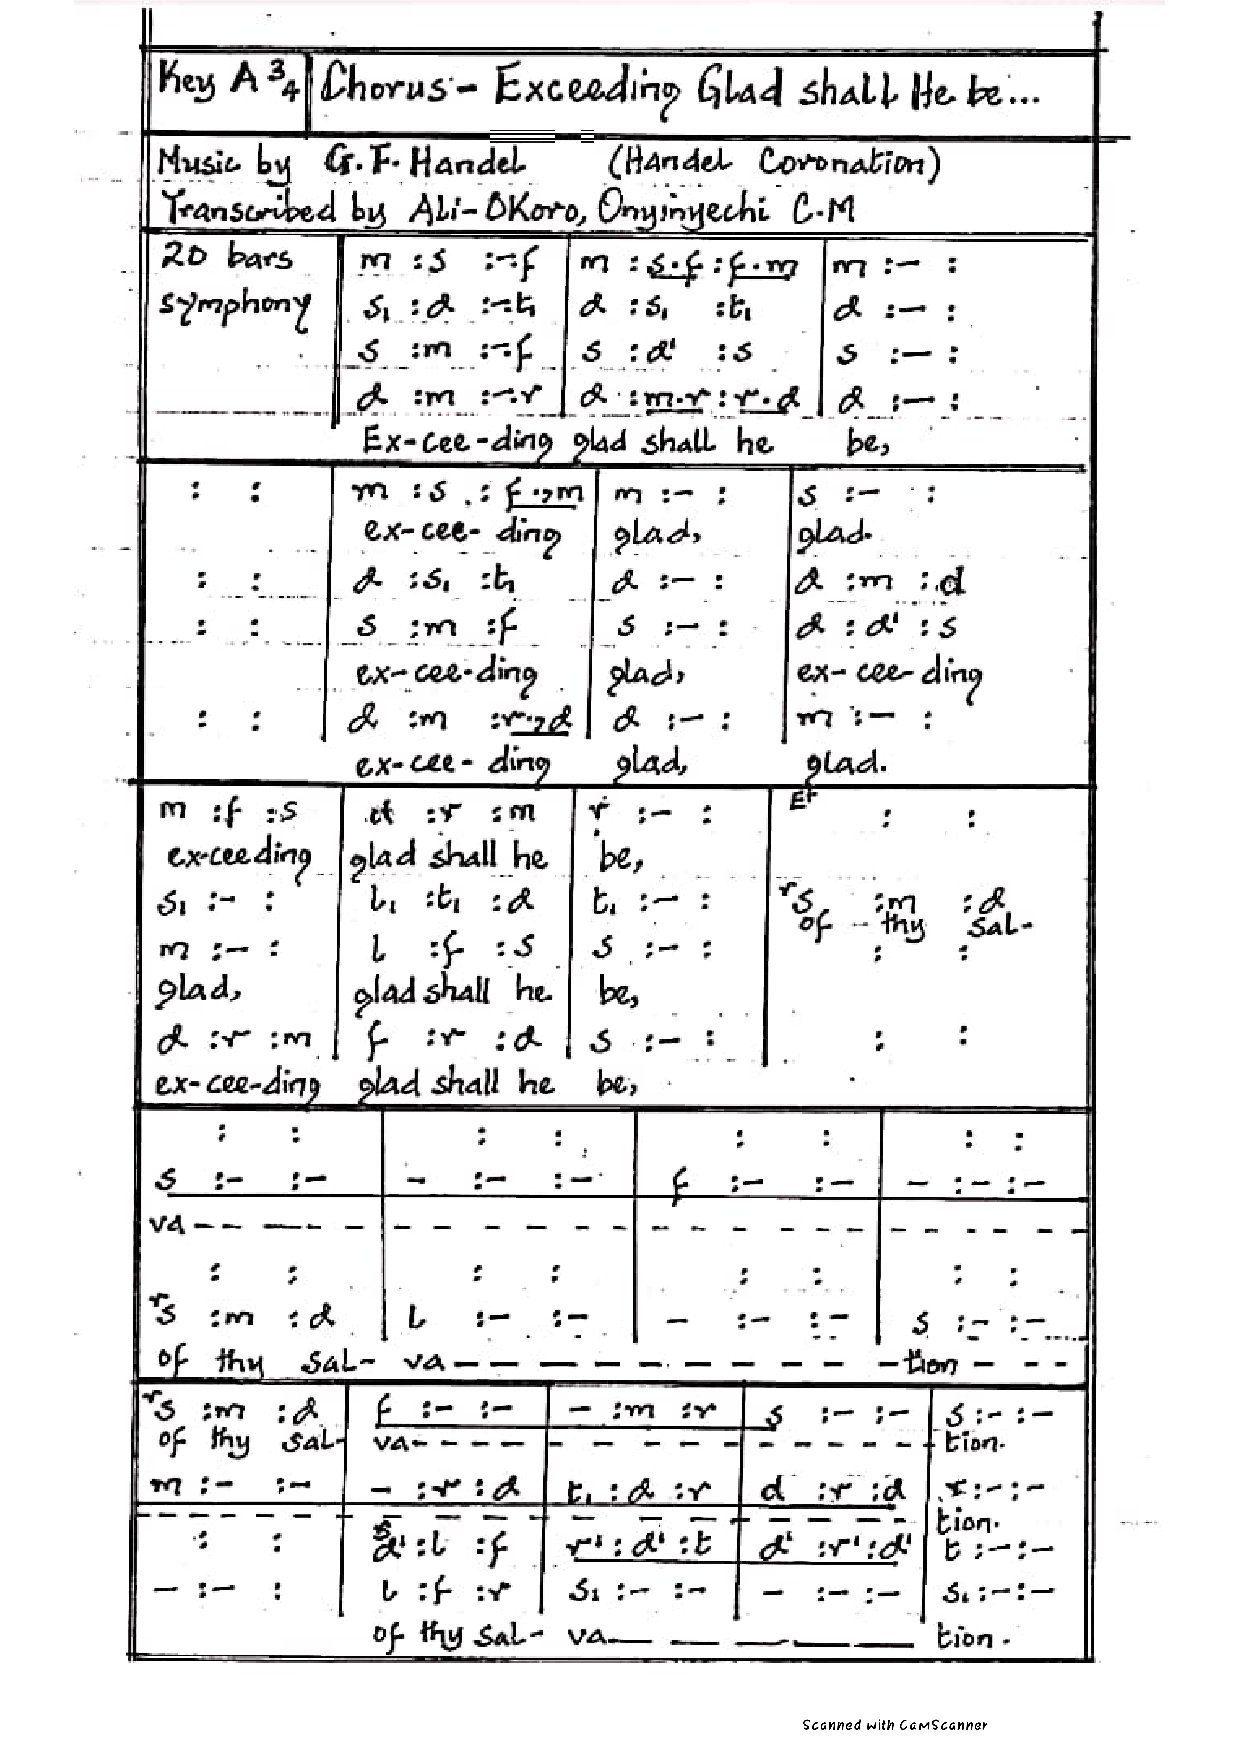 Key A 3/4 Chorus - Exceeding Glad shall He be...
Music by G.F. Handel (Handel Coronation)
Transcribed by Ali-Okoro, Onyinyechi C.M
20 bars m :s :-.f m :s.f :f.m m :- :
symphony s₁ :d :-.t₁ d :s₁ :t₁ d :- :
s :m :-.f s :d' :s s :- :
d :m :-.r d :m.r :r.d d :- :
Ex-cee-ding glad shall he be,
: : m :s :f.,m m :- : s :- :
ex-cee-ding glad, glad.
: : d :s₁ :t₁ d :- : d :m :d
: : s :m :f s :- : d :d' :s
ex-cee-ding glad, ex-cee-ding
: : d :m :r.,d d :- : m :- :
ex-cee-ding glad, glad.
m :f :s d :r :m r :- : : :
exceeding glad shall he be,
s₁ :- : l₁ :t₁ :d t₁ :- : ʳs :m :d
of thy sal-
m :- : l :f :s s :- : : :
glad, glad shall he be,
d :r :m f :r :d s :- : : :
ex-cee-ding glad shall he be,
: : : : : : : :
s :- :- - :- :- f :- :- - :- :-
va - - - - - - - - - - - - - - - -
: : : : : : : :
ʳs :m :d l :- :- - :- :- s :- :-
of thy sal- va - - - - - - - - - - -tion - - -
ʳs :m :d f :- :- - :m :r s :- :- s :- :-
of thy sal- va - - - - - - - - - - - - - tion.
m :- :- - :r :d t₁ :d :r d :r :d r :- :-
- - - - - - - - - - - - - - - - tion.
: : ˢd' :l :f r' :d' :t d' :r' :d' t :- :-
- :- : l :f :r s₁ :- :- - :- :- s₁ :- :-
of thy sal- va — — — — — tion.
Scanned with CamScanner